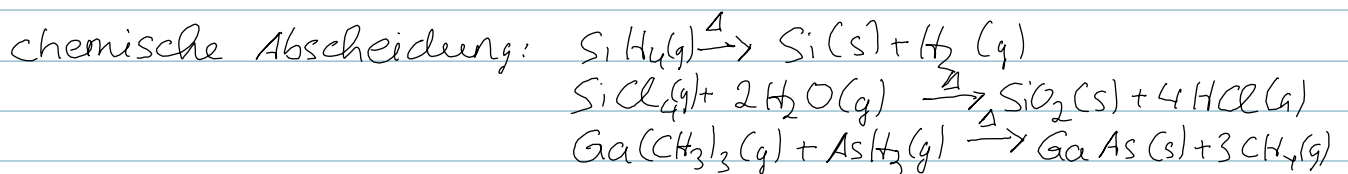 chemische Abscheidung: SiH₄(g) →Δ Si(s) + H₂ (g)
SiCl₄(g) + 2 H₂O(g) →Δ SiO₂(s) + 4 HCl(g)
Ga(CH₃)₃(g) + AsH₃(g) →Δ GaAs(s) + 3 CH₄(g)